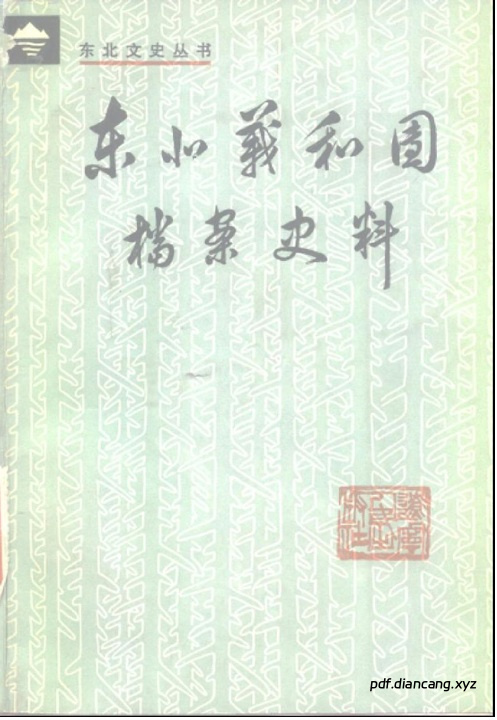 东北文史丛书
东北义和团
档案史料
辽宁
人民出
版社
pdf.diancang.xyz